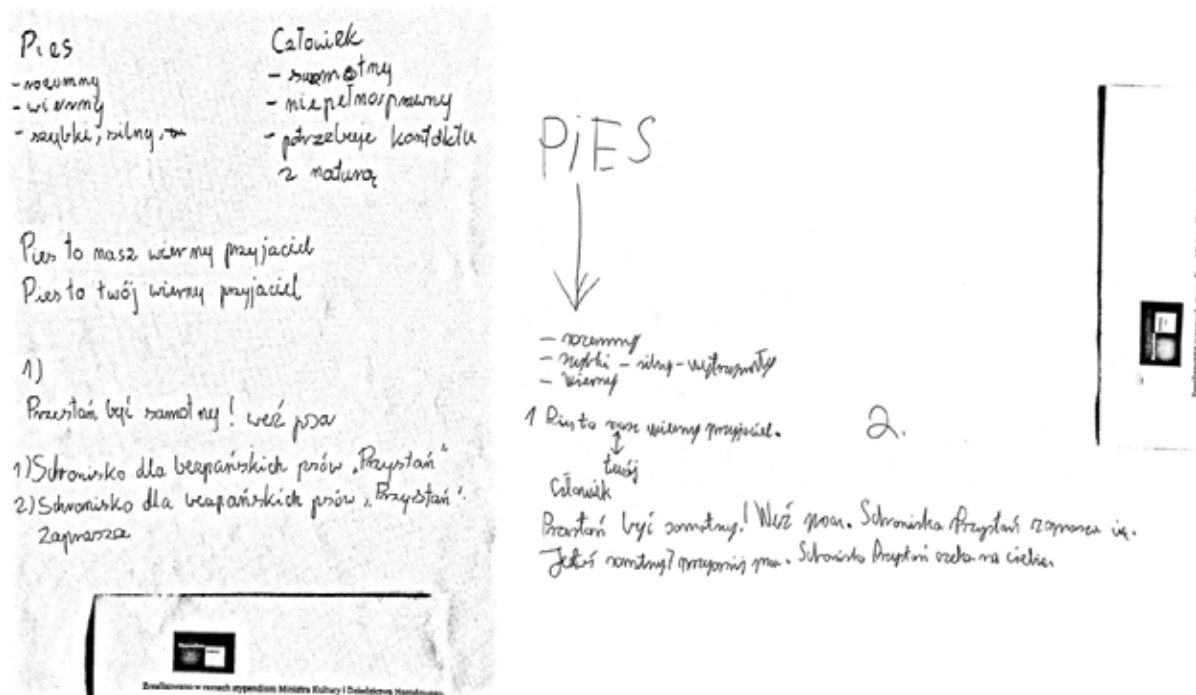 Pies
- rozumny
- wierny
- szybki, silny,
Człowiek
- samotny
- niepełnosprawny
- potrzebuje kontaktu
z naturą
Pies to nasz wierny przyjaciel
Pies to twój wierny przyjaciel
1)
Przestań być samotny! weź psa
1) Schronisko dla bezpańskich psów „Przystań"
2) Schronisko dla bezpańskich psów „Przystań".
Zaprasza
Zrealizowano w ramach stypendium Ministra Kultury i Dziedzictwa Narodowego
PiES
- rozumny
- szybki - silny - wytrzymały
- wierny
1 Pies to nasz wierny przyjaciel.
twój
2.
Człowiek
Przestań być samotny! Weź psa. Schronisko Przystań zaprasza
Jesteś samotny? przygarnij psa. Schronisko Przystań czeka na ciebie.